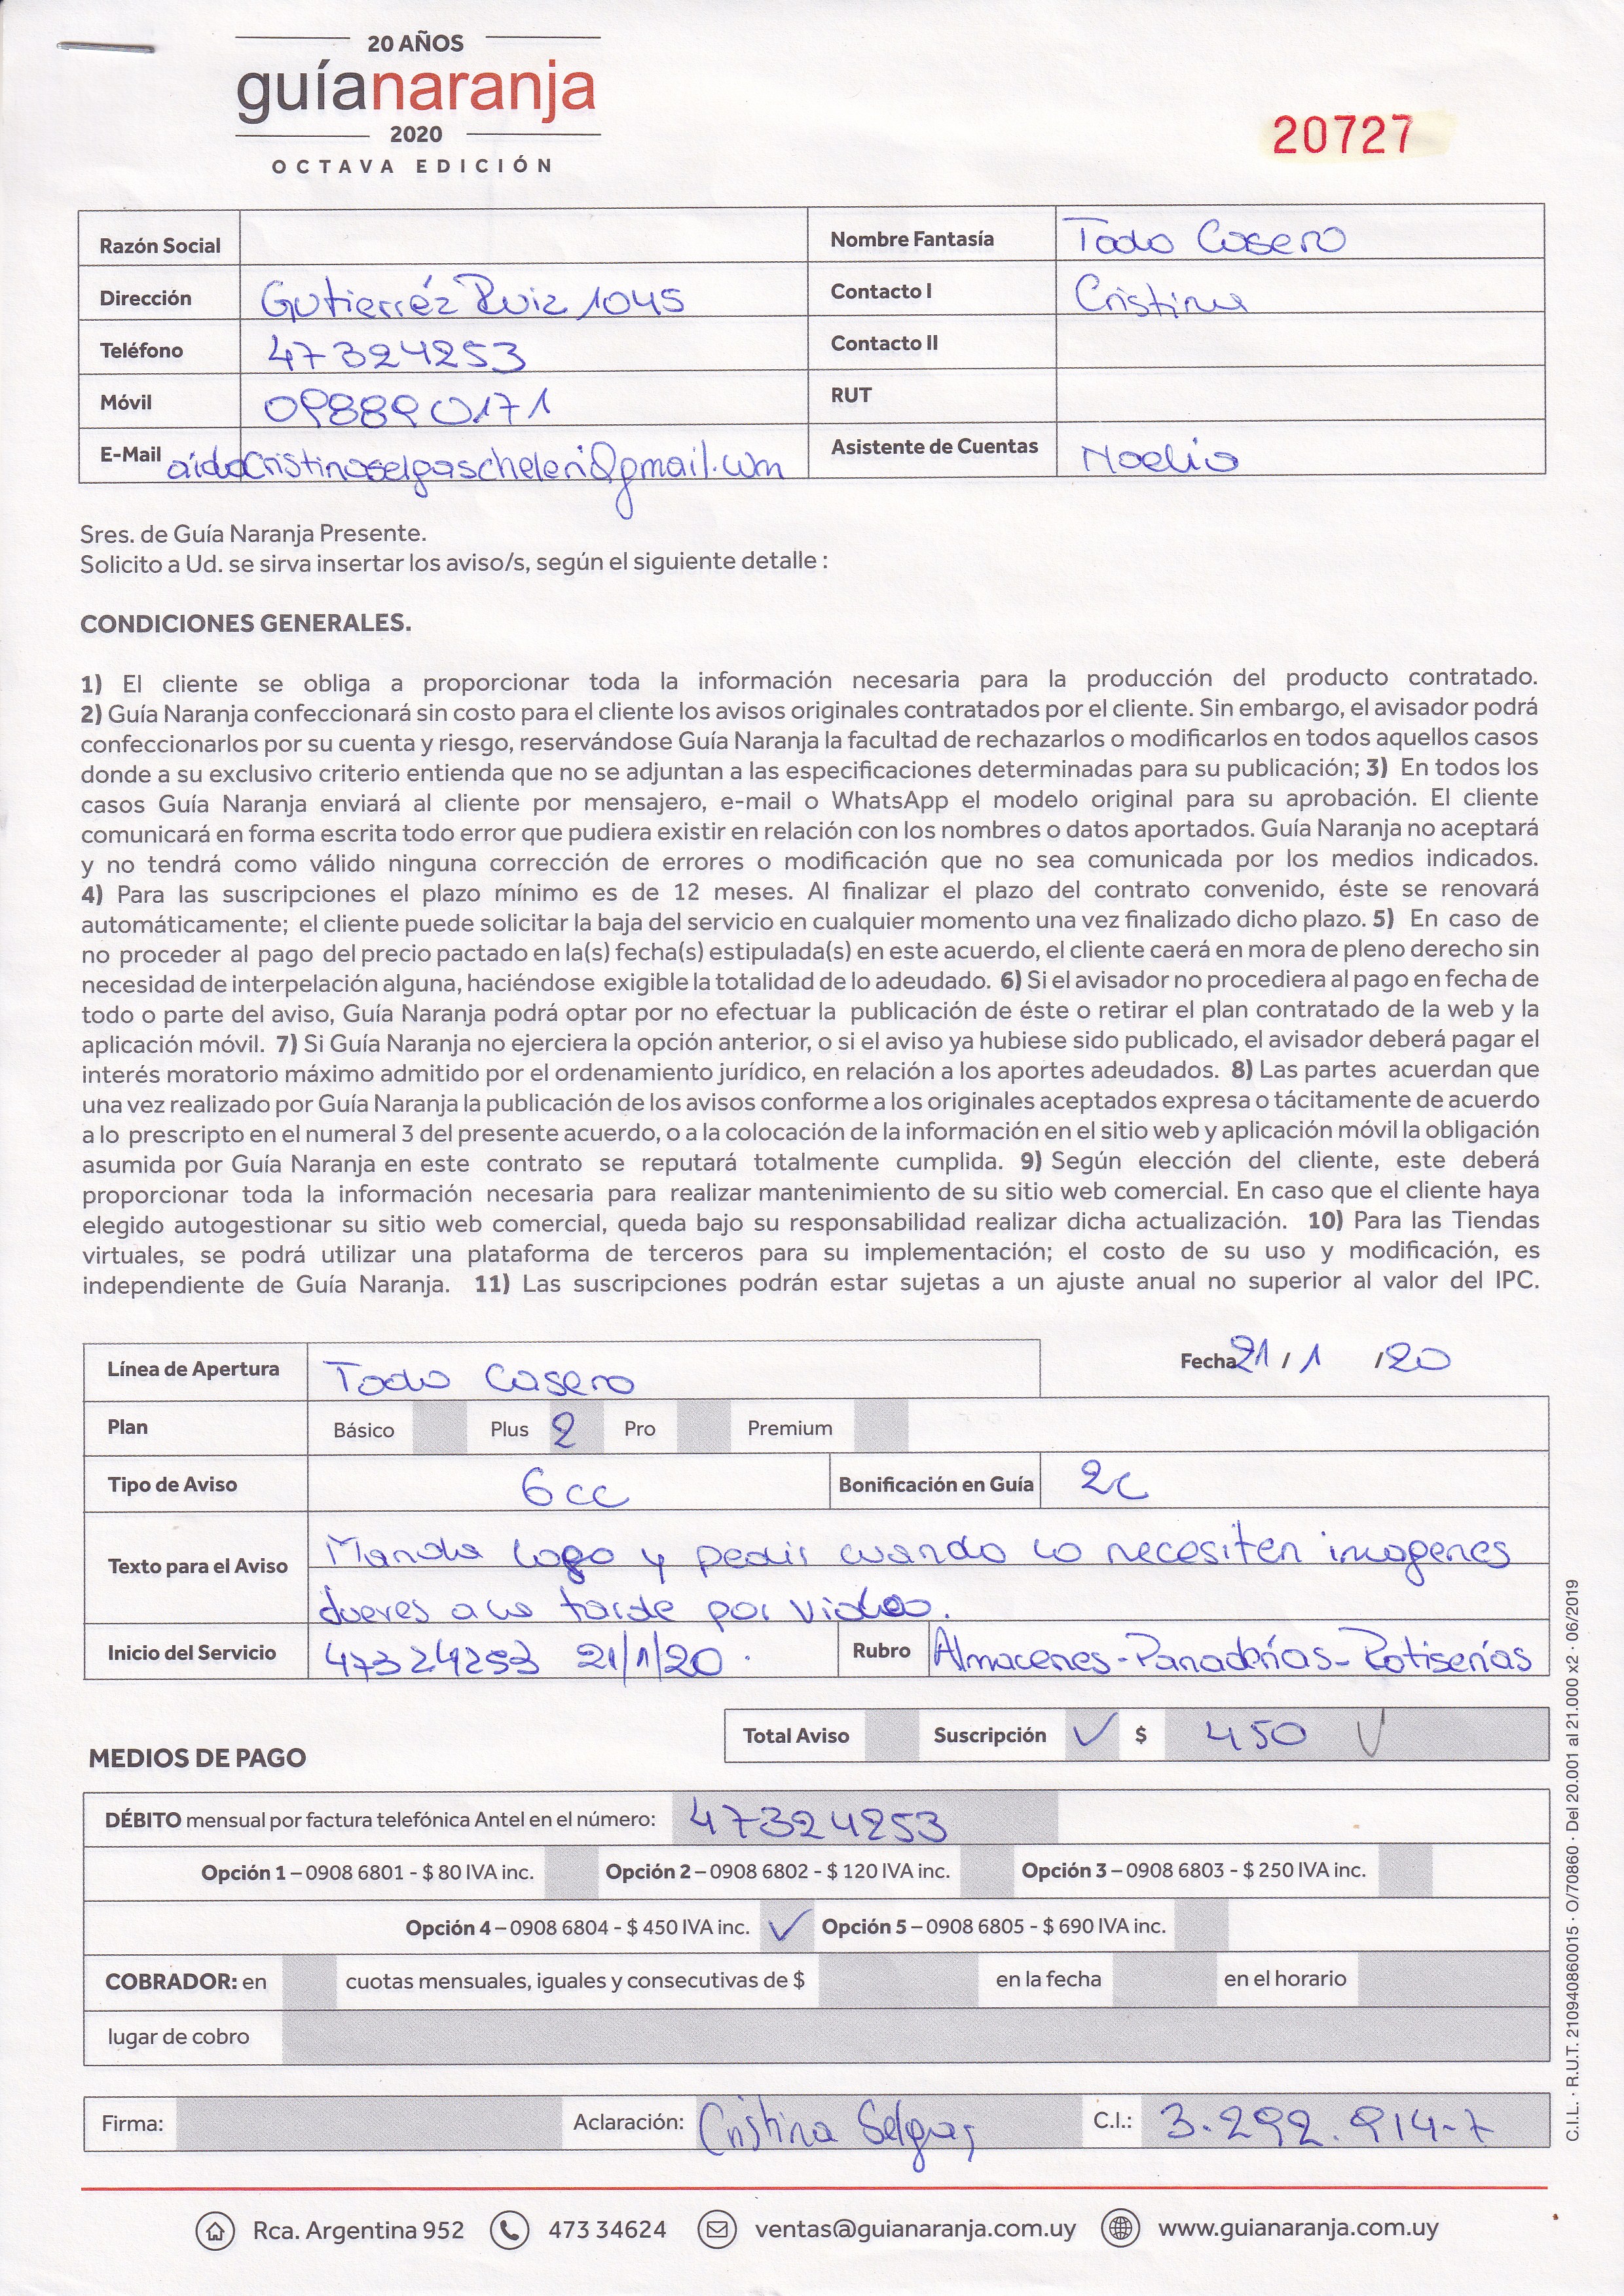 20 AÑOS
guíanaranja
2020
OCTAVA EDICIÓN
20727
Razón Social
Nombre Fantasía Todo Casero
Dirección Gutierréz Ruiz 1045
Contacto I Cristina
Teléfono 47324253
Contacto II
Móvil 098890171
RUT
E-Mail aidaCristinaselgascheleri@gmail.com
Asistente de Cuentas Noelia
Sres. de Guía Naranja Presente.
Solicito a Ud. se sirva insertar los aviso/s, según el siguiente detalle :
CONDICIONES GENERALES.
1) El cliente se obliga a proporcionar toda la información necesaria para la producción del producto contratado.
2) Guía Naranja confeccionará sin costo para el cliente los avisos originales contratados por el cliente. Sin embargo, el avisador podrá
confeccionarlos por su cuenta y riesgo, reservándose Guía Naranja la facultad de rechazarlos o modificarlos en todos aquellos casos
donde a su exclusivo criterio entienda que no se adjuntan a las especificaciones determinadas para su publicación; 3) En todos los
casos Guía Naranja enviará al cliente por mensajero, e-mail o WhatsApp el modelo original para su aprobación. El cliente
comunicará en forma escrita todo error que pudiera existir en relación con los nombres o datos aportados. Guía Naranja no aceptará
y no tendrá como válido ninguna corrección de errores o modificación que no sea comunicada por los medios indicados.
4) Para las suscripciones el plazo mínimo es de 12 meses. Al finalizar el plazo del contrato convenido, éste se renovará
automáticamente; el cliente puede solicitar la baja del servicio en cualquier momento una vez finalizado dicho plazo. 5) En caso de
no proceder al pago del precio pactado en la(s) fecha(s) estipulada(s) en este acuerdo, el cliente caerá en mora de pleno derecho sin
necesidad de interpelación alguna, haciéndose exigible la totalidad de lo adeudado. 6) Si el avisador no procediera al pago en fecha de
todo o parte del aviso, Guía Naranja podrá optar por no efectuar la publicación de éste o retirar el plan contratado de la web y la
aplicación móvil. 7) Si Guía Naranja no ejerciera la opción anterior, o si el aviso ya hubiese sido publicado, el avisador deberá pagar el
interés moratorio máximo admitido por el ordenamiento jurídico, en relación a los aportes adeudados. 8) Las partes acuerdan que
una vez realizado por Guía Naranja la publicación de los avisos conforme a los originales aceptados expresa o tácitamente de acuerdo
a lo prescripto en el numeral 3 del presente acuerdo, o a la colocación de la información en el sitio web y aplicación móvil la obligación
asumida por Guía Naranja en este contrato se reputará totalmente cumplida. 9) Según elección del cliente, este deberá
proporcionar toda la información necesaria para realizar mantenimiento de su sitio web comercial. En caso que el cliente haya
elegido autogestionar su sitio web comercial, queda bajo su responsabilidad realizar dicha actualización. 10) Para las Tiendas
virtuales, se podrá utilizar una plataforma de terceros para su implementación; el costo de su uso y modificación, es
independiente de Guía Naranja. 11) Las suscripciones podrán estar sujetas a un ajuste anual no superior al valor del IPC.
Línea de Apertura Todo Casero
Fecha 21 / 1 / 20
Plan Básico Plus 2 Pro Premium
Tipo de Aviso 6cc Bonificación en Guía 2c
Texto para el Aviso Manda logo y pedir cuando lo necesiten imagenes
Jueves a la tarde por video.
Inicio del Servicio 47324253 21/1/20. Rubro Almacenes-Panaderías-Rotiserías
Total Aviso Suscripción ✓ $ 450 ✓
MEDIOS DE PAGO
DÉBITO mensual por factura telefónica Antel en el número: 47324253
Opción 1 – 0908 6801 - $ 80 IVA inc. Opción 2 – 0908 6802 - $ 120 IVA inc. Opción 3 – 0908 6803 - $ 250 IVA inc.
Opción 4 – 0908 6804 - $ 450 IVA inc. ✓ Opción 5 – 0908 6805 - $ 690 IVA inc.
COBRADOR: en cuotas mensuales, iguales y consecutivas de $ en la fecha en el horario
lugar de cobro
Firma: Aclaración: Cristina Selgas C.I.: 3.292.914-7
Rca. Argentina 952 473 34624 ventas@guianaranja.com.uy www.guianaranja.com.uy
C.I.L. · R.U.T. 210940860015 · O/70860 · Del 20.001 al 21.000 x2 · 06/2019